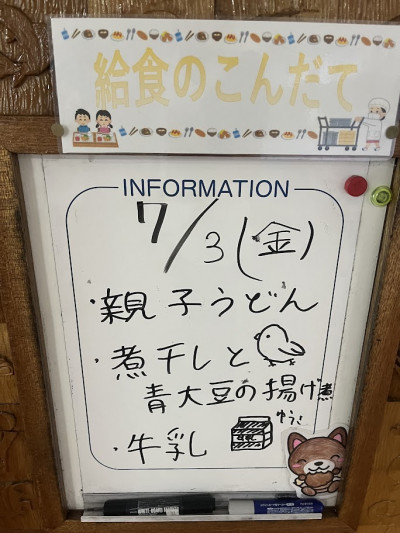 給食のこんだて
INFORMATION
7/3(金)
・親子うどん
・煮干しと
青大豆の揚げ煮
・牛乳
WHITE BOARD MARKER